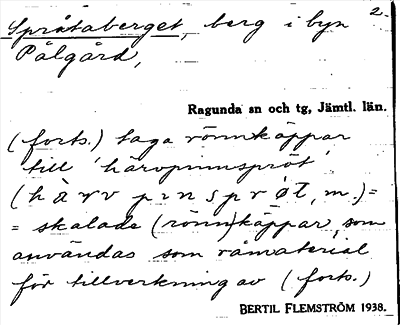 2.
Språtaberget, berg i byn
Pålgård,
Ragunda sn och tg, Jämtl. län.
(forts.) taga rönnkäppar
till 'härvpinnspröt'
(hàrv pınsprøt, m.)=
= skalade (rönn)käppar, som
användas som råmaterial
för tillverkning av (forts.)
BERTIL FLEMSTRÖM 1938.